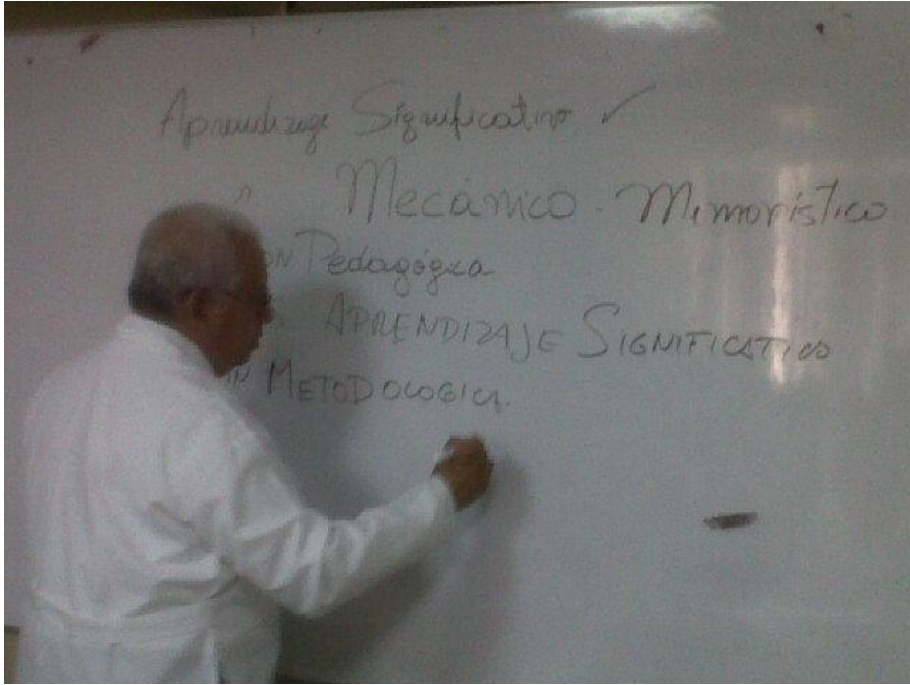 Aprendizaje Significativo ✓
" Mecánico. Memorístico
ON Pedagógica
APRENDIZAJE SIGNIFICATIVO
METODOLOGICA.